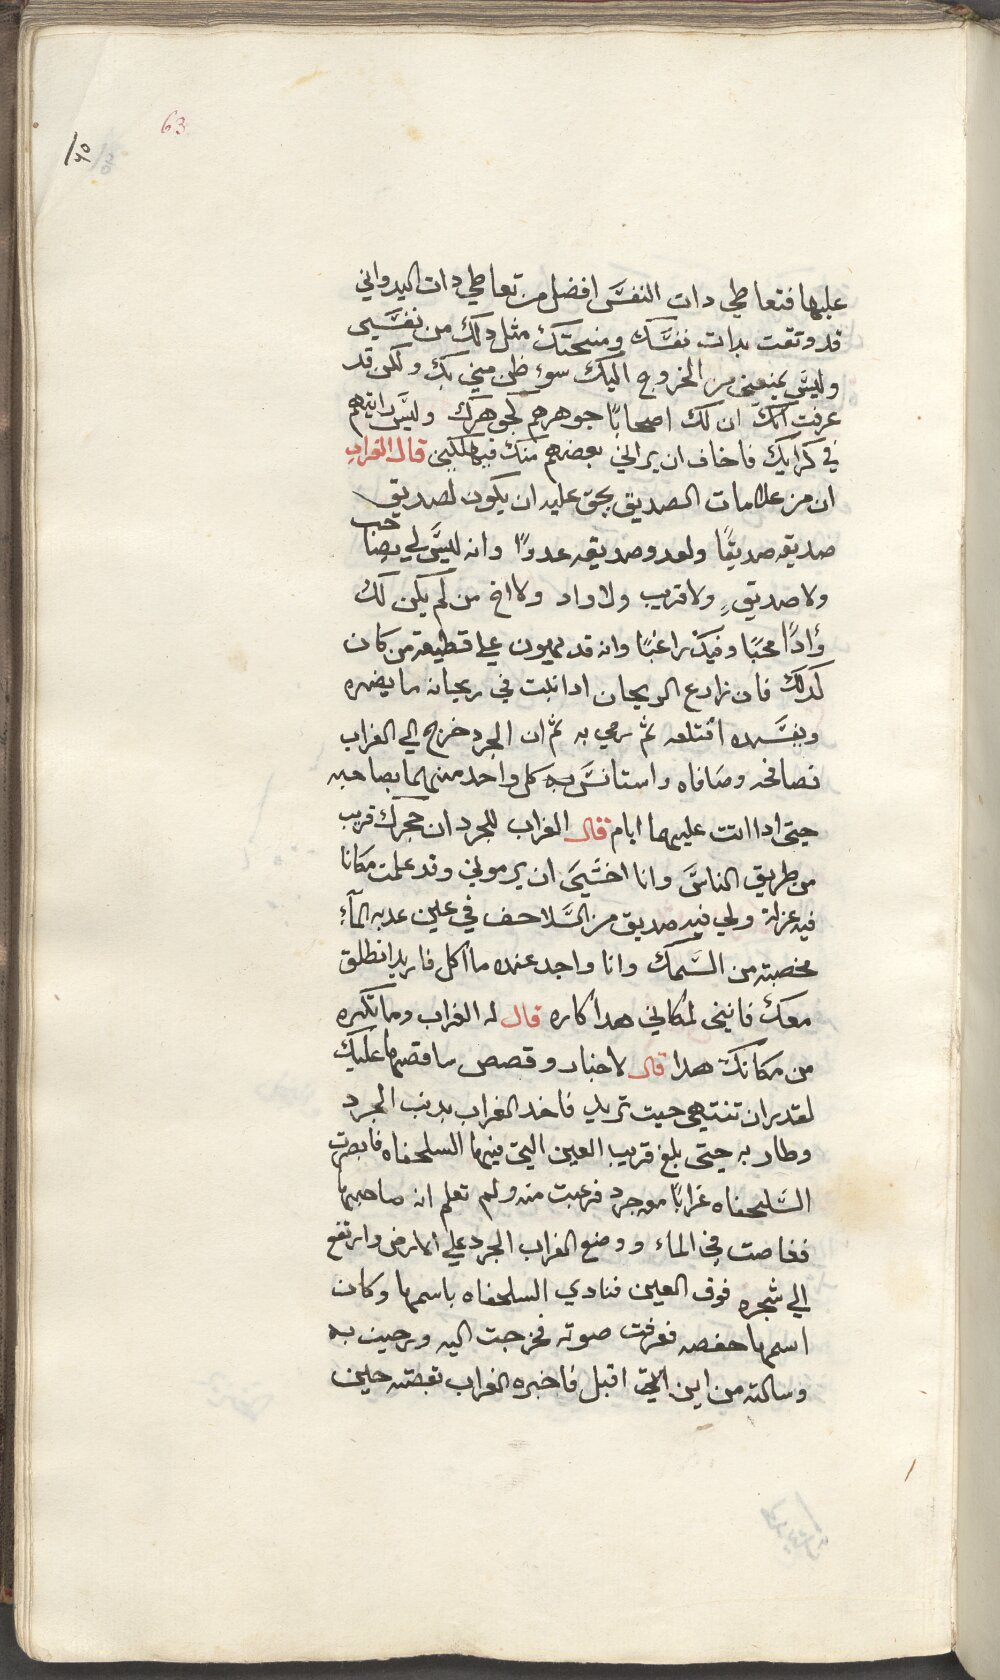 63
٦٥
عليها فتعاطي دات النفس افضل من تعاطي دات اليد واني
قد وتقت بدات نفسك ومنحتك مثل دلك من نفسي
وليس يمنعني من الخروج اليك سوء ظن مني بك ولكن قد
عرفت انك ان لك اصحابا جوهرهم كجوهرك وليس رايهم
في كرايك فاخاف ان يراني بعضهم منك فيهلكني قال الغراب
ان من علامات الصديق يحق عليه ان يكون لصديق
صديقه صديقًا ولعدو صديقه عدوًا وانه ليس لي بصاحب
ولا صديقٍ ولا قريب ولا واد ولا اخ من لم يكن لك
وُادًا محبًا وفيك راغبًا وانه قد يهون علي قطيعة من كان
كدلك فان زارع الريحان ادا نبت في ريحانه ما يضره
ويفسده اقتلعه ثم رمي به ثم ان الجرد خرج الي الغراب
فصافحه وصافاه واستانس به كل واحد منهما بصاحبه
حتي ادا اتت عليهما ايام فقال الغراب للجرد ان حجرك قريب
من طريق الناس وانا اخشي ان يرموني وقد علمت مكانا
فيه عزلة ولي فيه صديق من السلاحف في عين عدبه المآء
مخصبه من السمك وانا واجد عنده ما اكل فاريد انطلق
معك فانني لمكاني هدا كاره قال له الغراب وما تكره
من مكانك هدا قال لاخبار وقصص ساقصها عليك
لقد ان تنتهي حيت تريد فاخد الغراب بدنب الجرد
وطار به حتي بلغ قريب العين التي فيها السلحفاه فابصرت
السلحفاه غرابًا معه جرد فرعبت منه ولم تعلم انه صاحبها
فغاصت في الماء ووضع الغراب الجرد علي الارض وارتفع
الي شجره فوق العين فنادي السلحفاه باسمها وكان
اسمها حفصه فعرفت صوته فخرجت اليه ورحبت به
وسالته من اين اقبل فاخبره الغراب بقصته حين